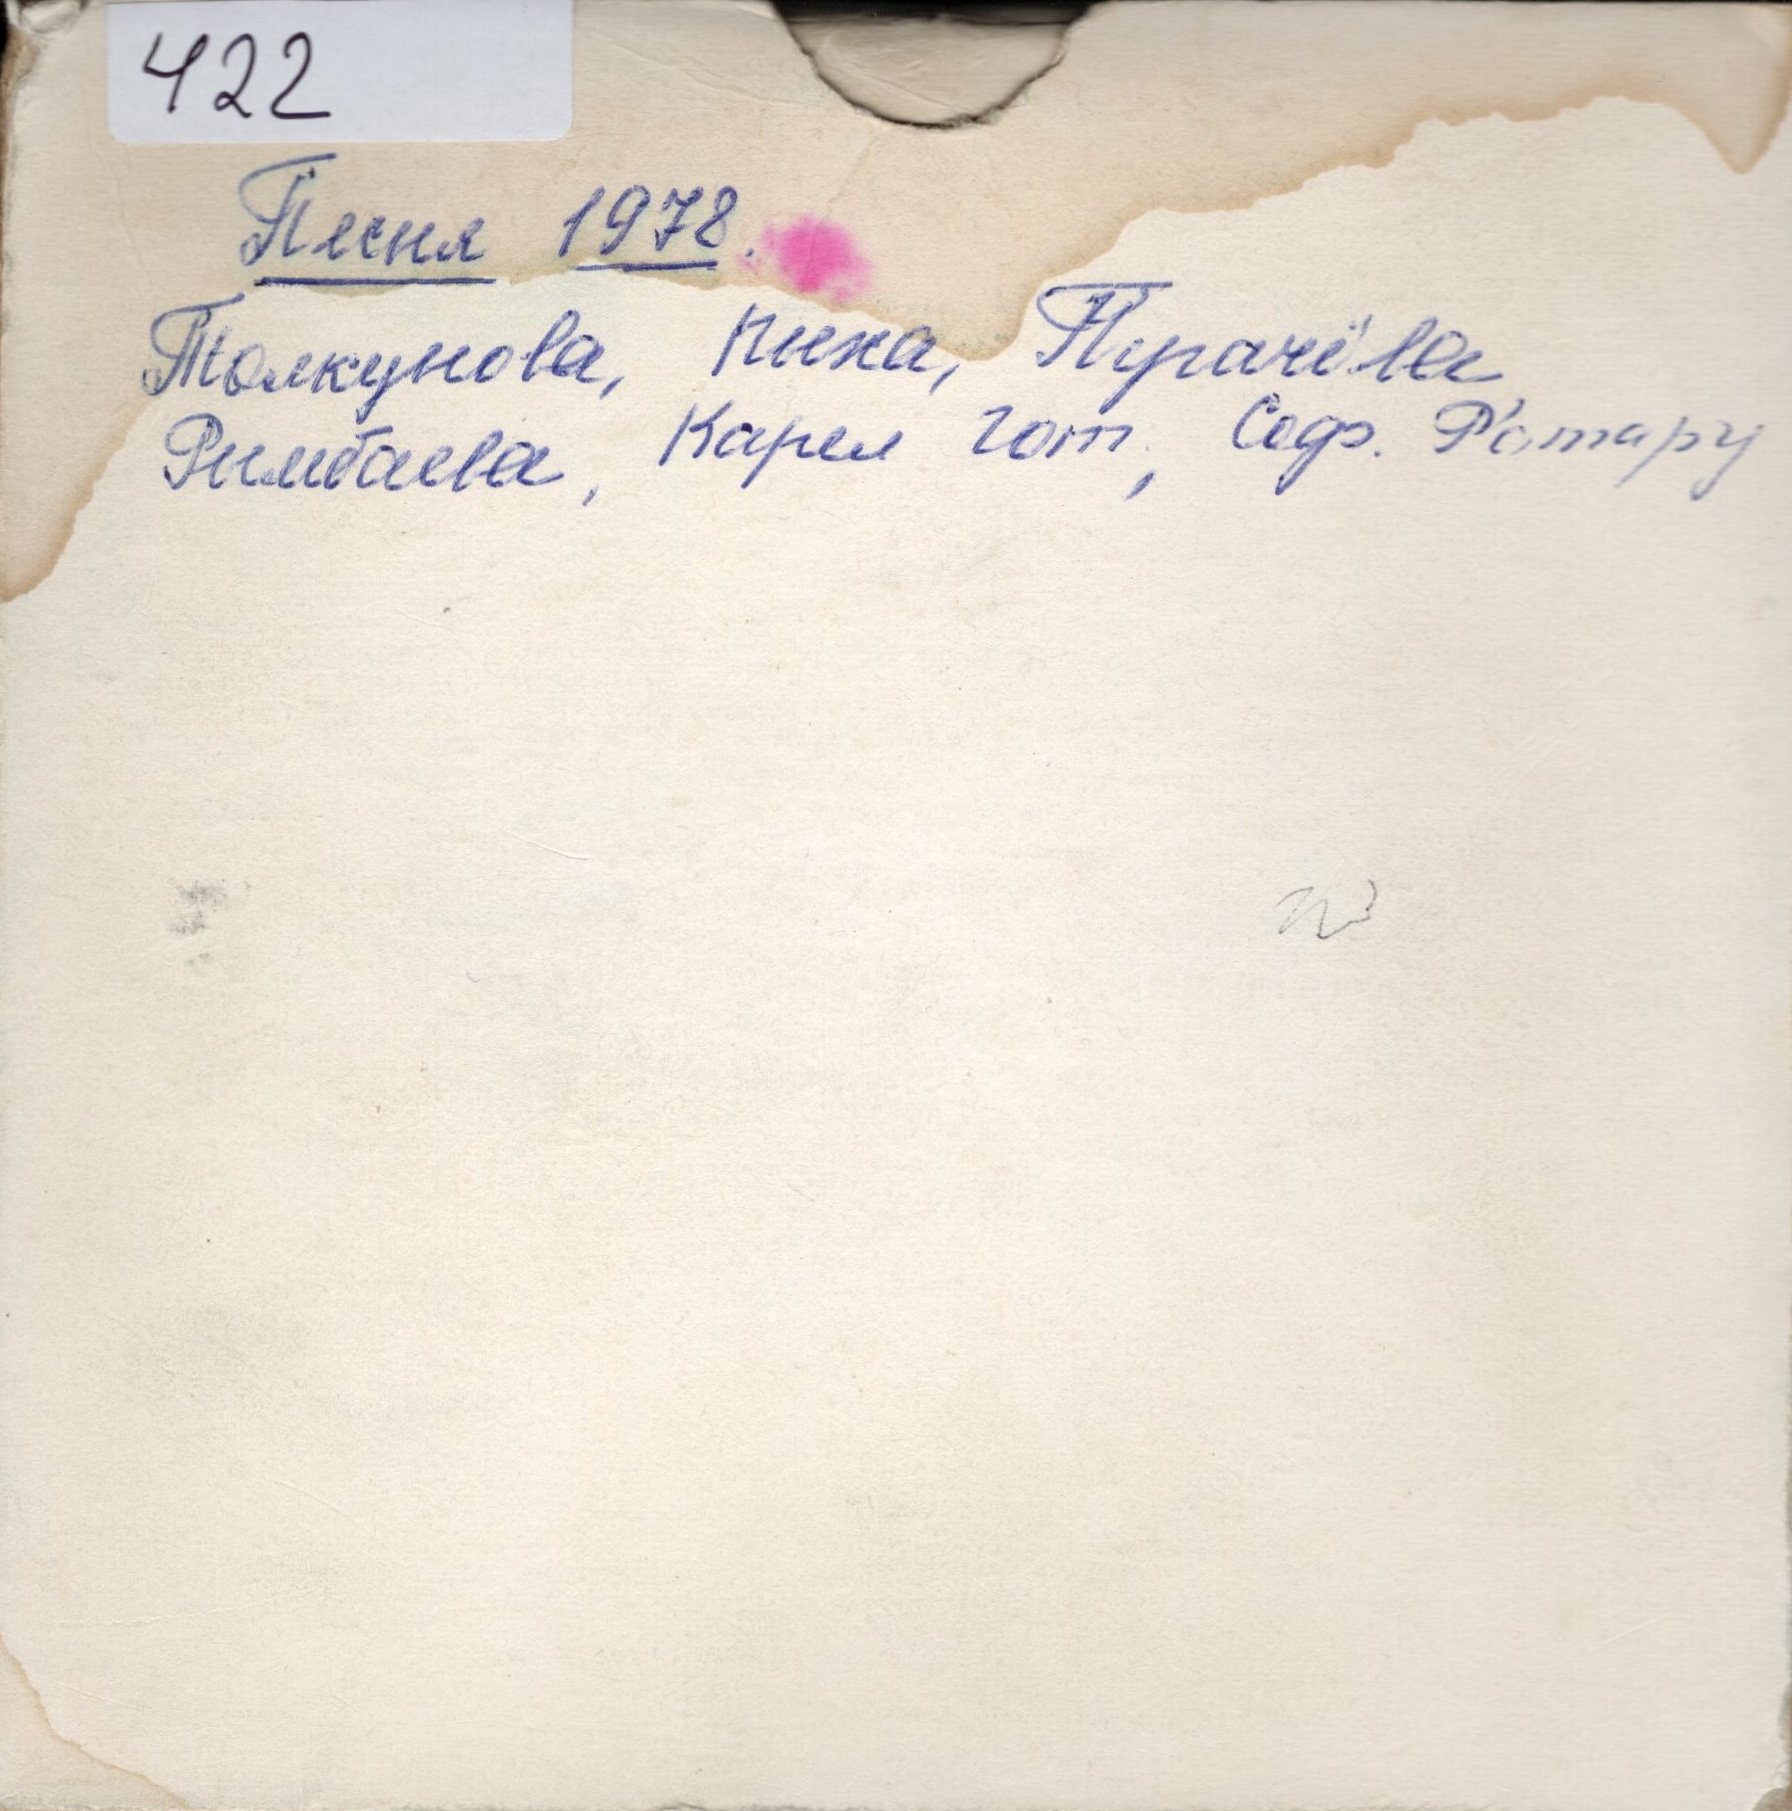 422
Песня 1978.
Толкунова, Пьеха, Пугачёва
Римбаева, Карел Гот, Соф. Ротару